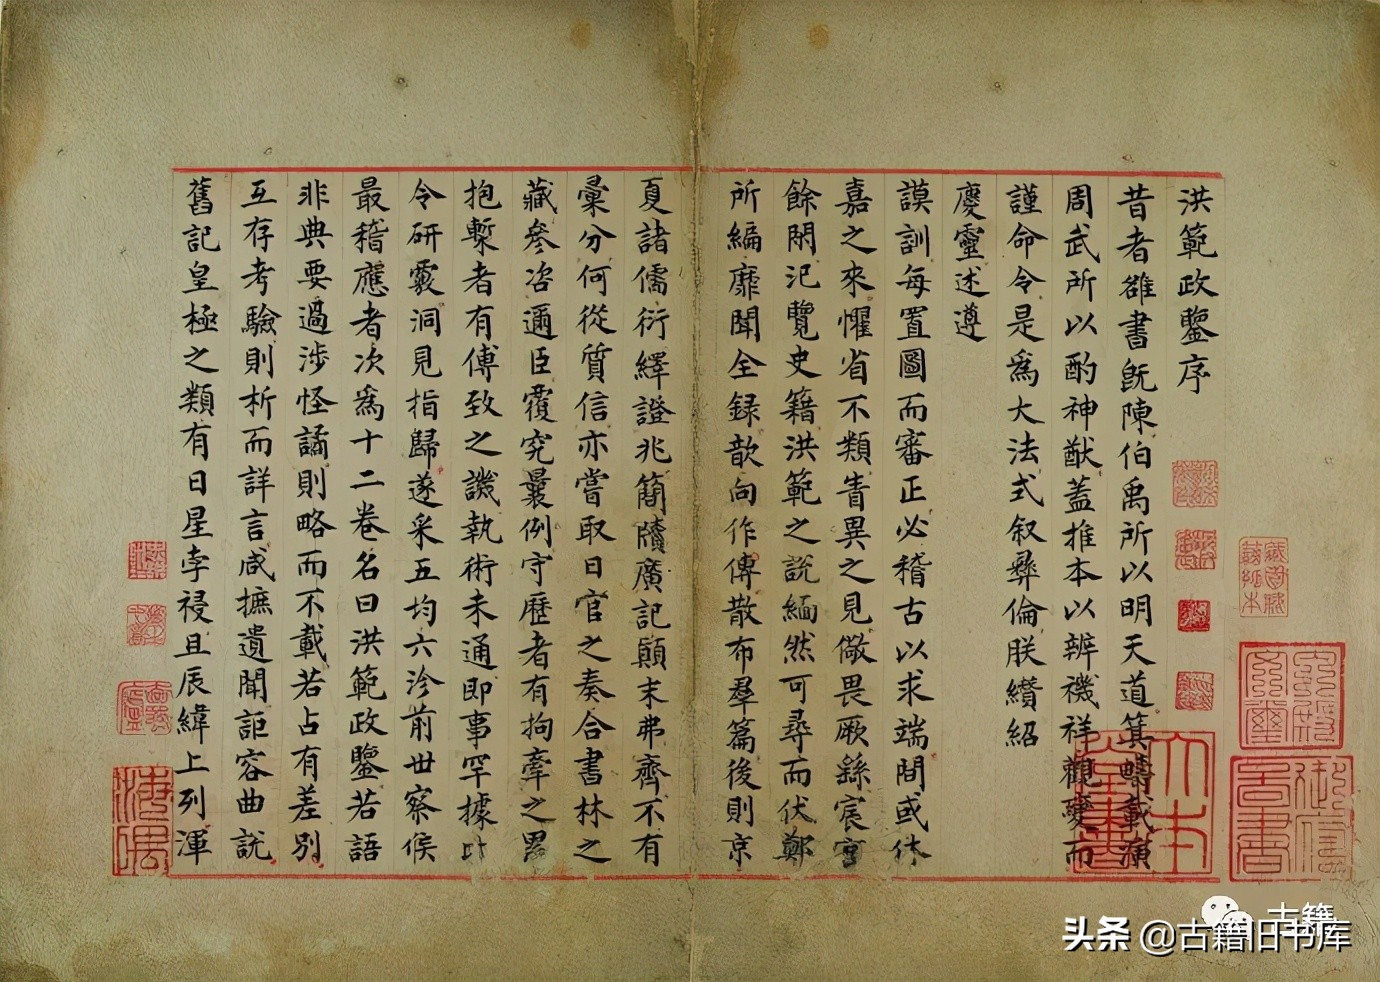 洪範政鑒序
昔者雒書旣陳伯禹所以明天道箕疇載演
周武所以酌神猷蓋推本以辨禨祥觀變而
謹命令是爲大法式叙彝倫朕纘紹
慶靈述遵
謨訓每置圖而審正必稽古以求端間或休
嘉之來懼省不類眚異之見儆畏厥繇宸
餘閒汜覽史籍洪範之説緬然可尋而伏鄭
所編靡聞全録歆向作傳散布羣篇後則京
夏諸儒衍繹證兆簡牘廣記顛末弗齊不有
彙分何從質信亦嘗取日官之奏合書林之
藏參咨邇臣覆究曩例守歷者有拘牽之畏
抱槧者有傅致之譏執術未通即事罕據比
令研覈洞見指歸遂采五均六沴前世察候
最稽應者次爲十二卷名曰洪範政鑒若語
非典要過涉怪譎則略而不載若占有差别
互存考驗則析而詳言咸摭遺聞詎容曲説
舊記皇極之類有日星孛祲且辰緯上列渾
御府圖書
大本堂書
海隅
古籍
头条 @古籍旧书库